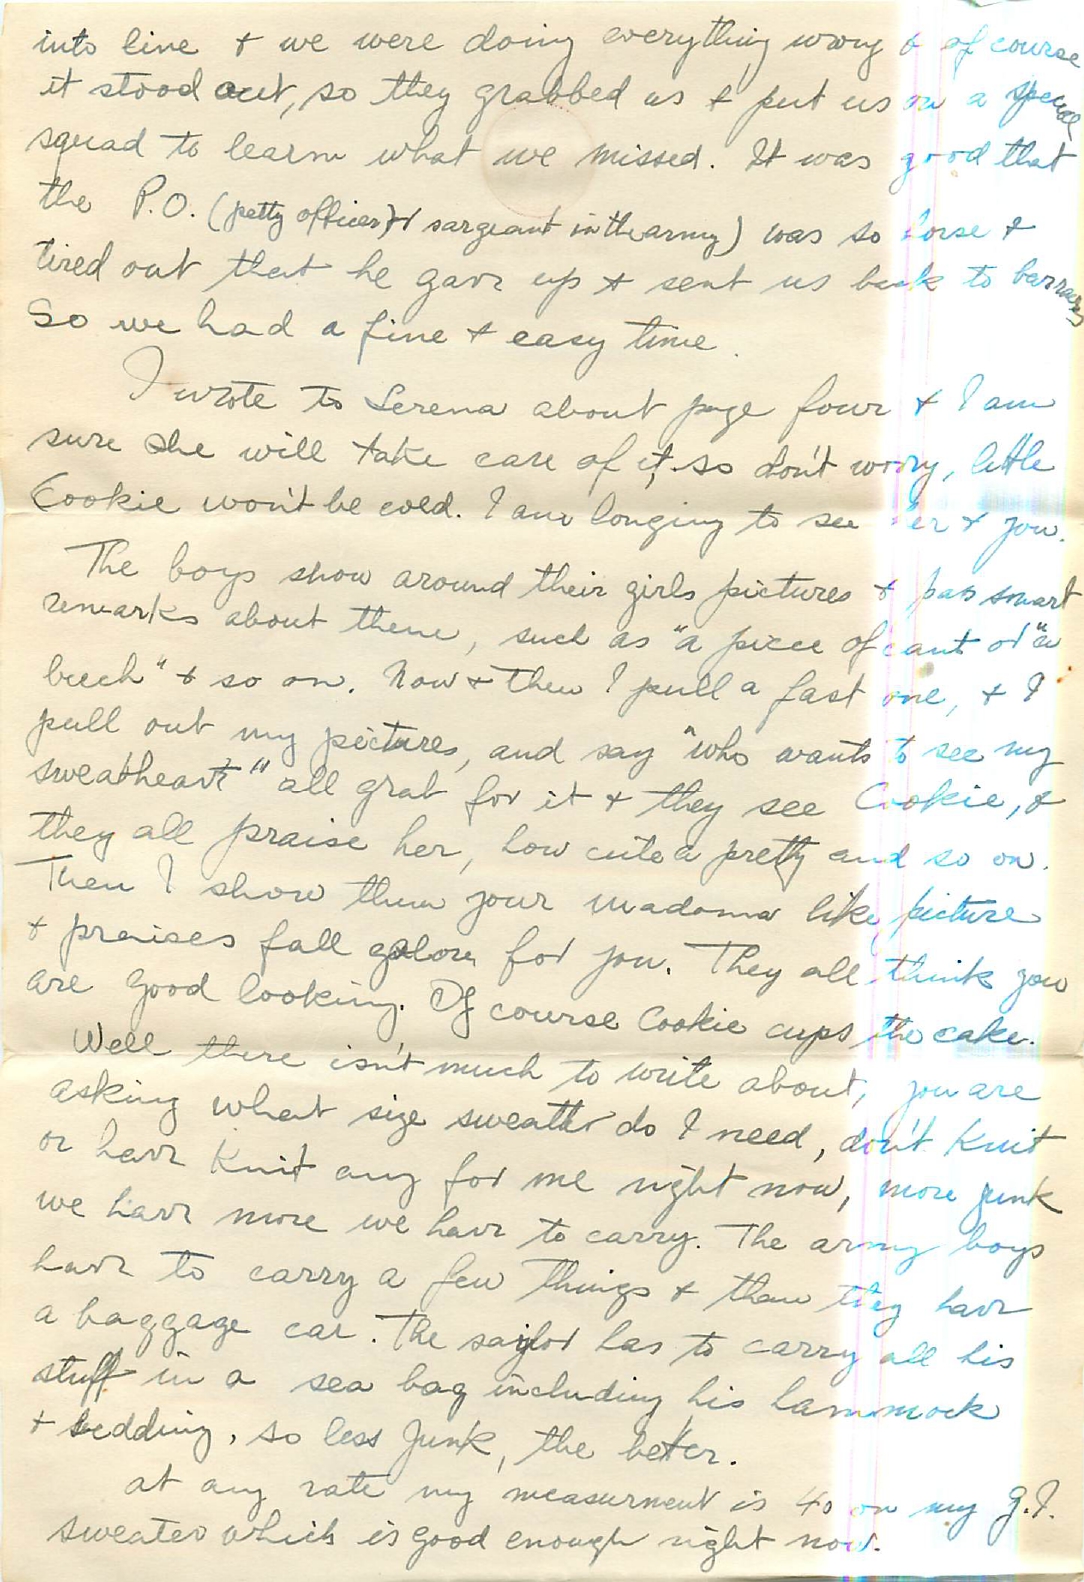 into line & we were doing everything wrong & of course
it stood out, so they grabbed us & put us on a special
squad to learn what we missed. It was good that
the P.O. (petty officer) & sargeant in the army) was so horse &
tired out that he gave up & sent us back to barracks
So we had a fine & easy time.
I wrote to Serena about page four & I am
sure she will take care of it, so don't worry, little
Cookie won't be cold. I am longing to see her & you.
The boys show around their girls pictures & pass smart
remarks about them, such as "a piece of cunt or "a
beech" & so on. Now & then I pull a fast one, & I
pull out my pictures, and say "who wants to see my
sweatheart" all grab for it & they see Cookie, &
they all praise her, how cute & pretty and so on.
Then I show them your madona like picture
& praises fall galore for you. They all think you
are good looking. Of course Cookie cups the cake.
Well there isn't much to write about, you are
asking what size sweatter do I need, don't knit
or have knit any for me right now, more junk
we have more we have to carry. The army boys
have to carry a few things & than they have
a baggage car. The sailor has to carry all his
stuff in a sea bag including his hammock
& bedding, so less junk, the better.
at any rate my measurment is 40 on my G.I.
sweater which is good enough right now.